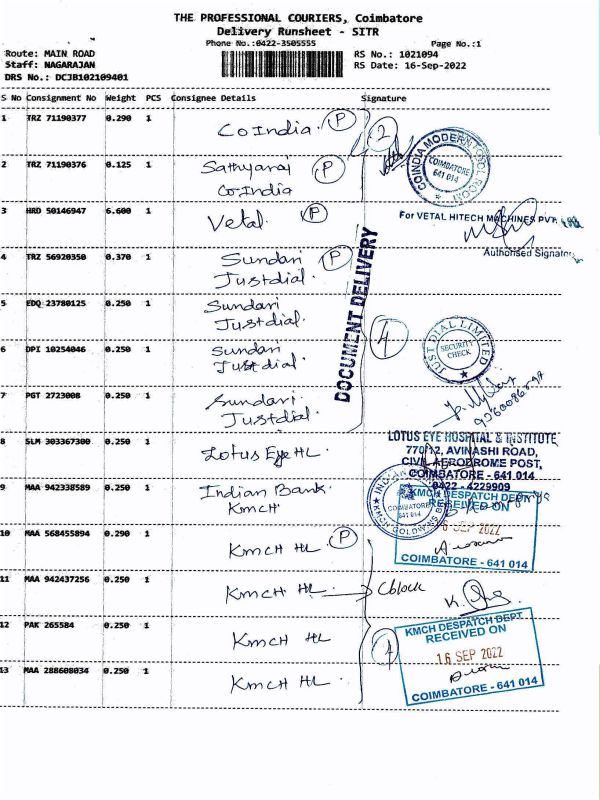 THE PROFESSIONAL COURIERS, Coimbatore
Delivery Runsheet - SITR
Phone No.:0422-3505555 Page No.:1
Route: MAIN ROAD RS No.: 1021094
Staff: NAGARAJAN RS Date: 16-Sep-2022
DRS No.: DCJB102109401
S No Consignment No Weight PCS Consignee Details Signature
1 TRZ 71190377 0.290 1 CoIndia. P 2
COINDIA MODERN TOOL ROOM
COIMBATORE
641 014
2 TRZ 71190376 0.125 1 Sathyaraj P
CoIndia
3 HRD 50146947 6.600 1 Vetal. P
For VETAL HITECH MACHINES PVT.
Authorised Signatory
4 TRZ 56920350 0.370 1 Sundari P
Justdial.
DOCUMENT DELIVERY
5 EDQ 23780125 0.250 1 Sundari
Justdial.
4
JUST DIAL LIMITED
SECURITY
CHECK
6 DPI 10254046 0.250 1 Sundari
Justdial.
7 PGT 2723008 0.250 1 Sundari
Justdial.
8 SLM 303367300 0.250 1 Lotus Eye HL
LOTUS EYE HOSPITAL & INSTITUTE
770/12, AVINASHI ROAD,
CIVIL AERODROME POST,
COIMBATORE - 641 014
0422 - 4229909
9 MAA 942338589 0.250 1 Indian Bank.
KMCH
INDIAN
COIMBATORE
641 014
KMCH DESPATCH DEPT
RECEIVED ON
6 SEP 2022
COIMBATORE - 641 014
10 MAA 568455894 0.290 1 KMCH HL P
11 MAA 942437256 0.250 1 KMCH HL Cblock
12 PAK 265584 0.250 1 KMCH HL
4
KMCH DESPATCH DEPT
RECEIVED ON
16 SEP 2022
COIMBATORE - 641 014
13 MAA 288608034 0.250 1 KMCH HL